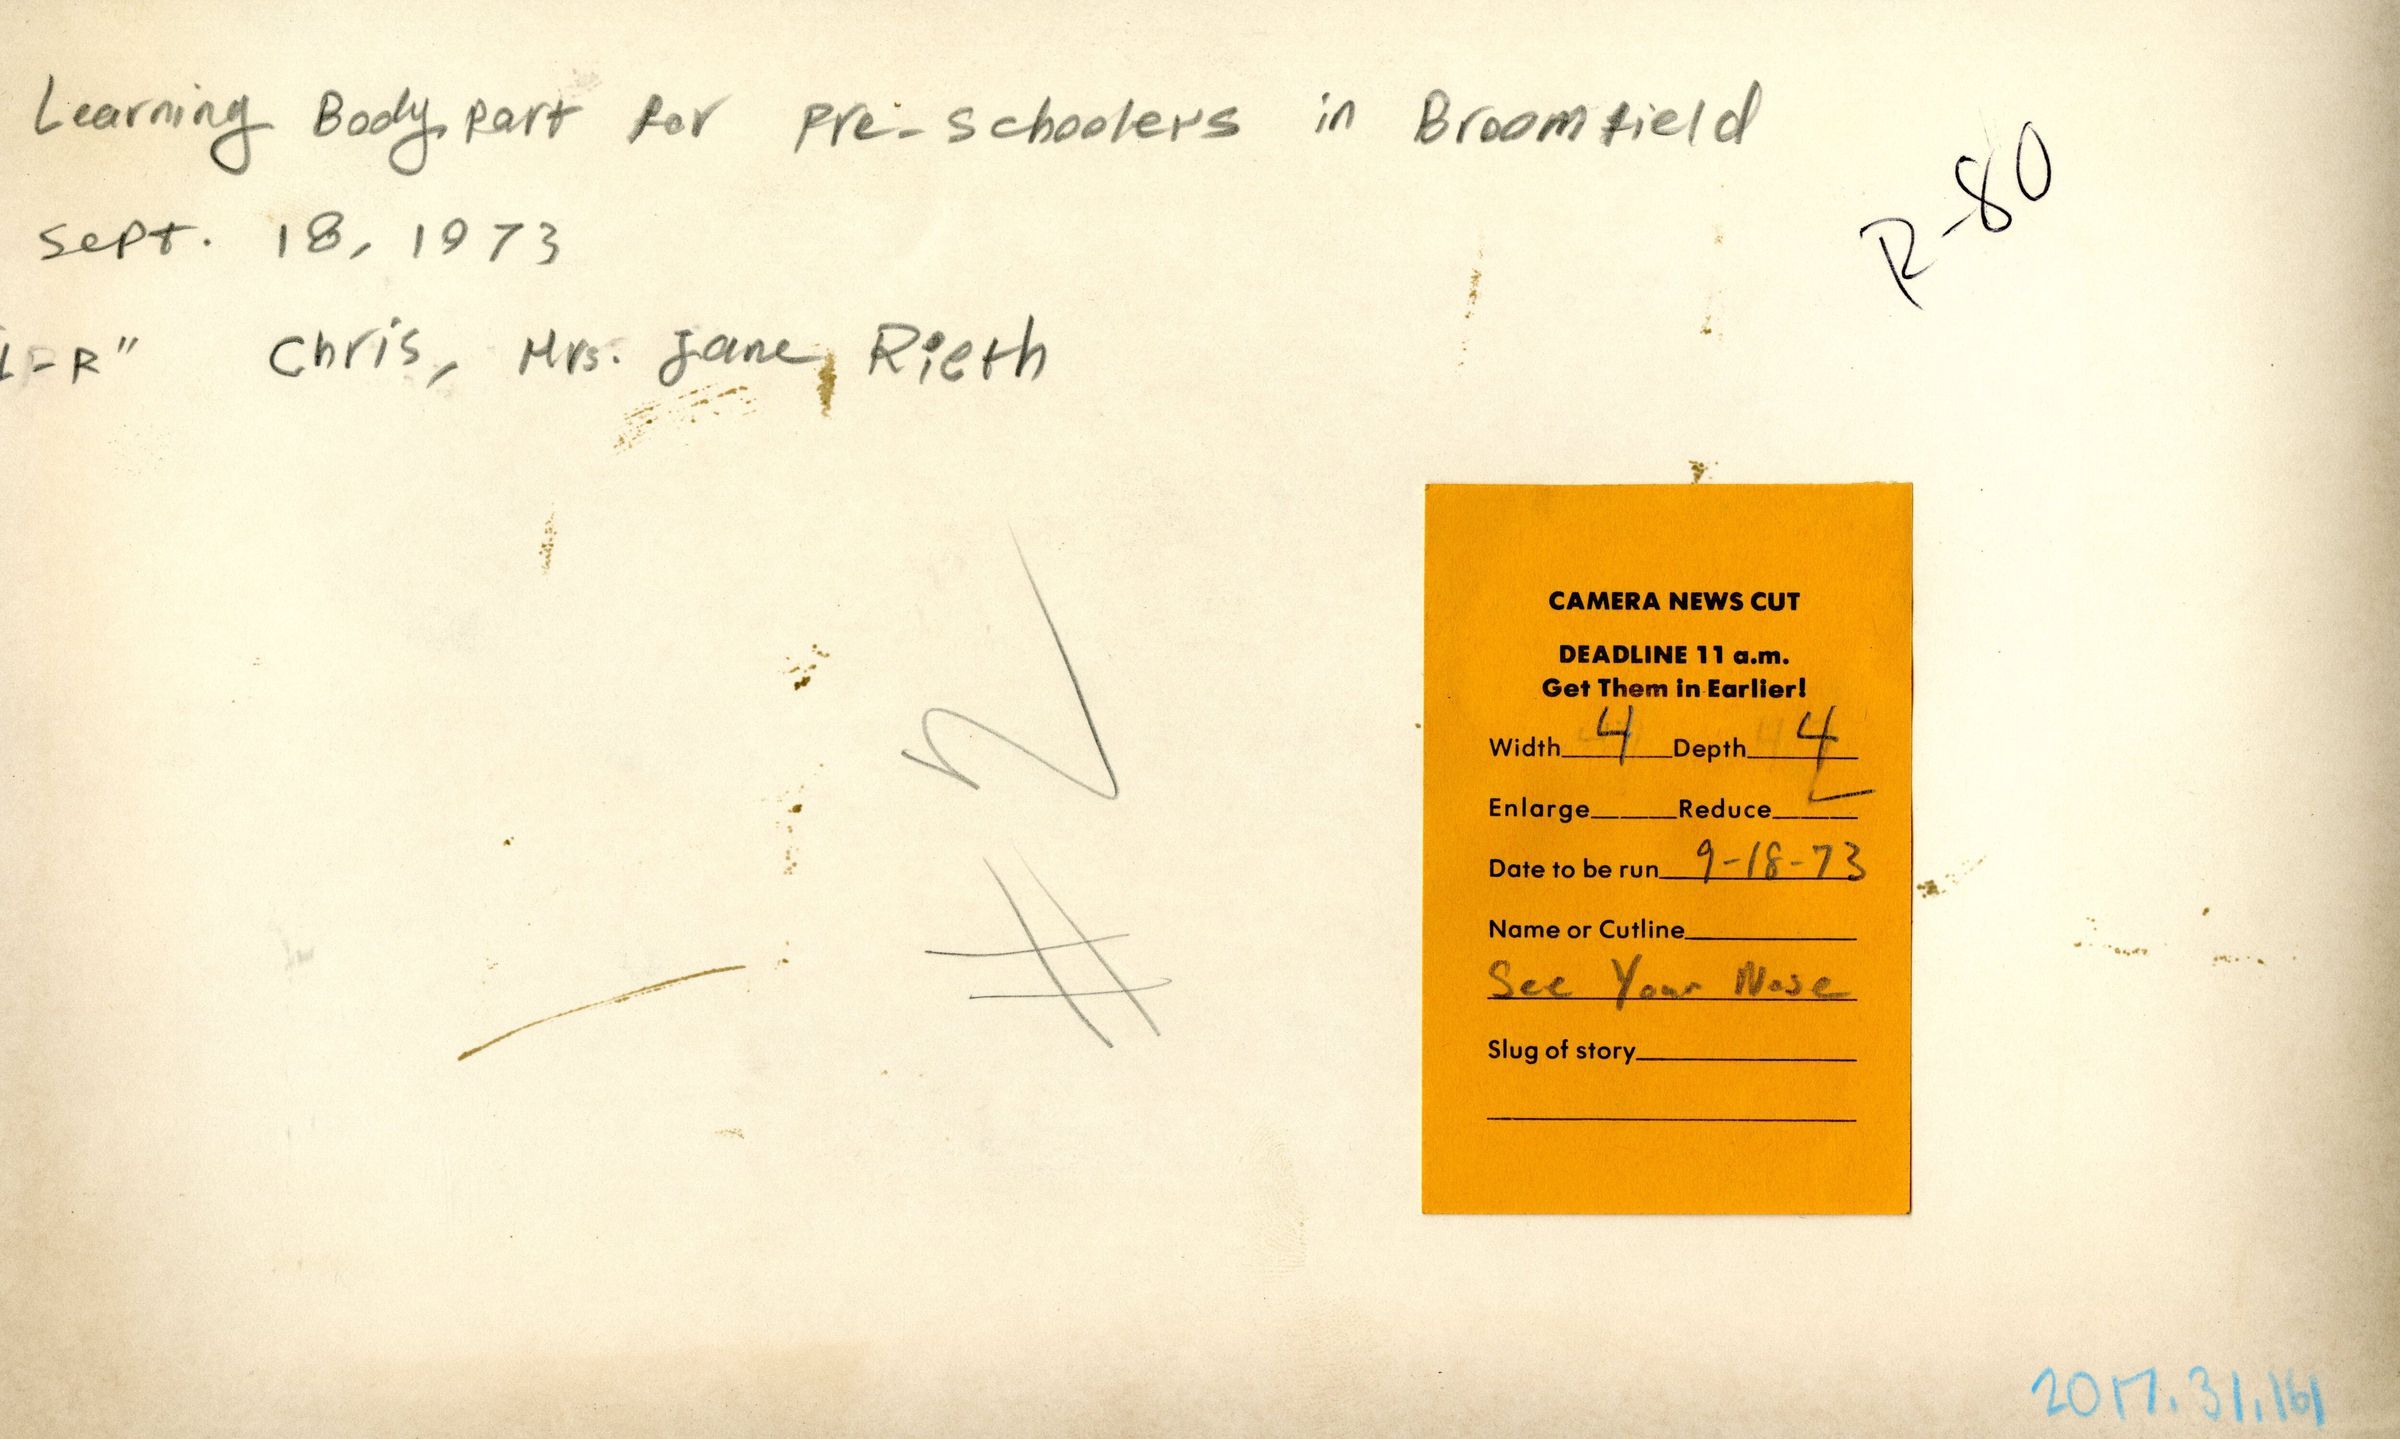 Learning Body part for pre-schoolers in Broomfield
Sept. 18, 1973
L-R" Chris, Mrs. Jane Rieth
R-80
# 2
CAMERA NEWS CUT
DEADLINE 11 a.m.
Get Them in Earlier!
Width 4 Depth 4
Enlarge Reduce
Date to be run 9-18-73
Name or Cutline
See Your Nose
Slug of story
2017.31.161